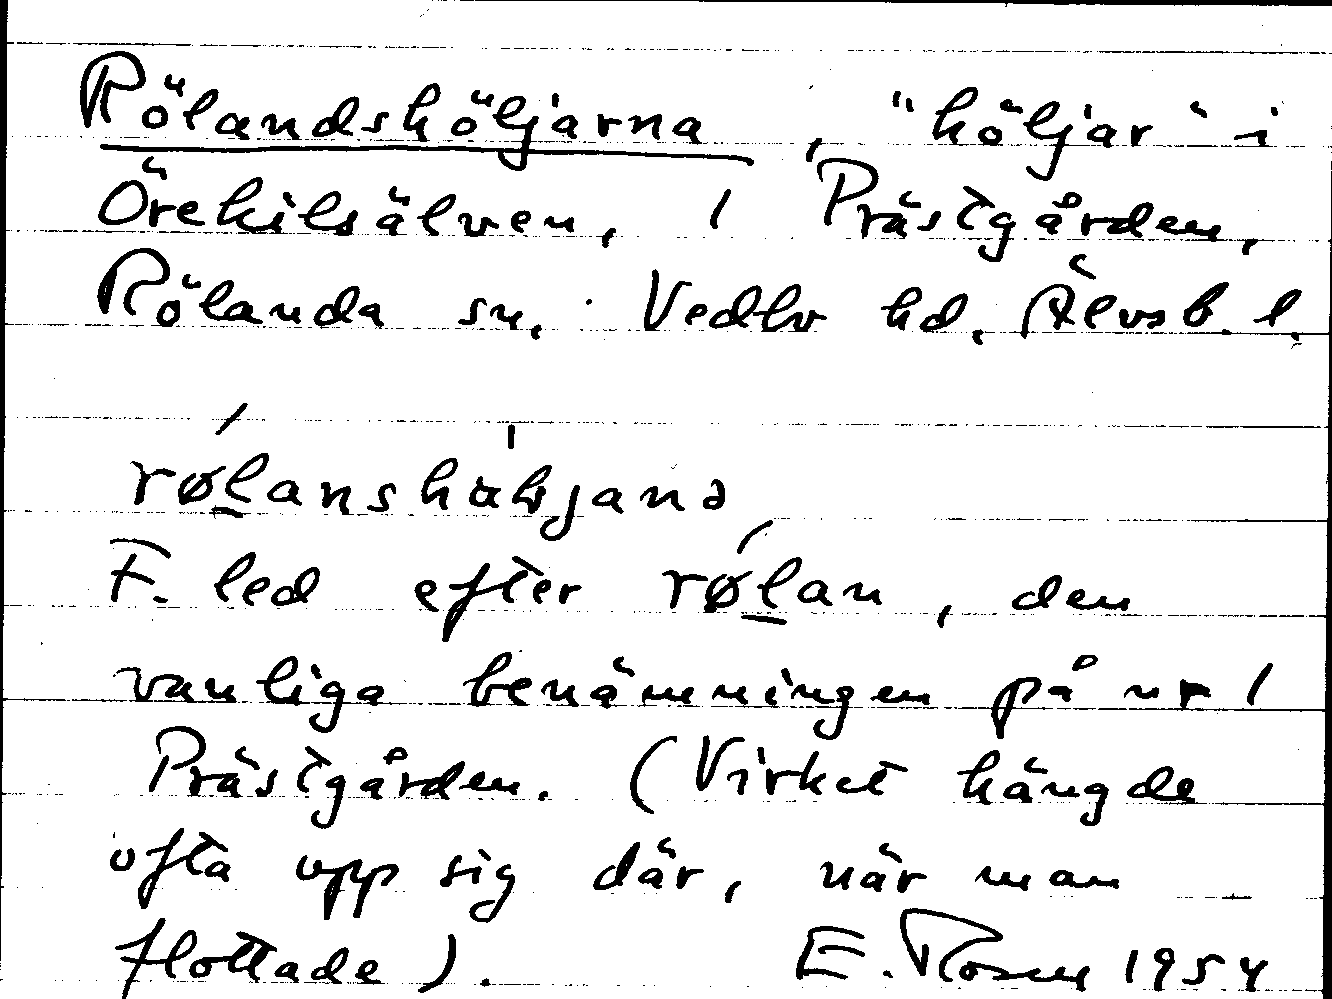 Rölandshöljarna, "höljar" i
Örekilsälven, 1 Prästgården,
Rölanda sn. Vedbo hd. Älvsb. l.
F. led efter røḻan, den
vanliga benämningen på nr 1
Prästgården. (Virket hängde
ofta upp sig där, när man
flottade). E. Rosen 1954